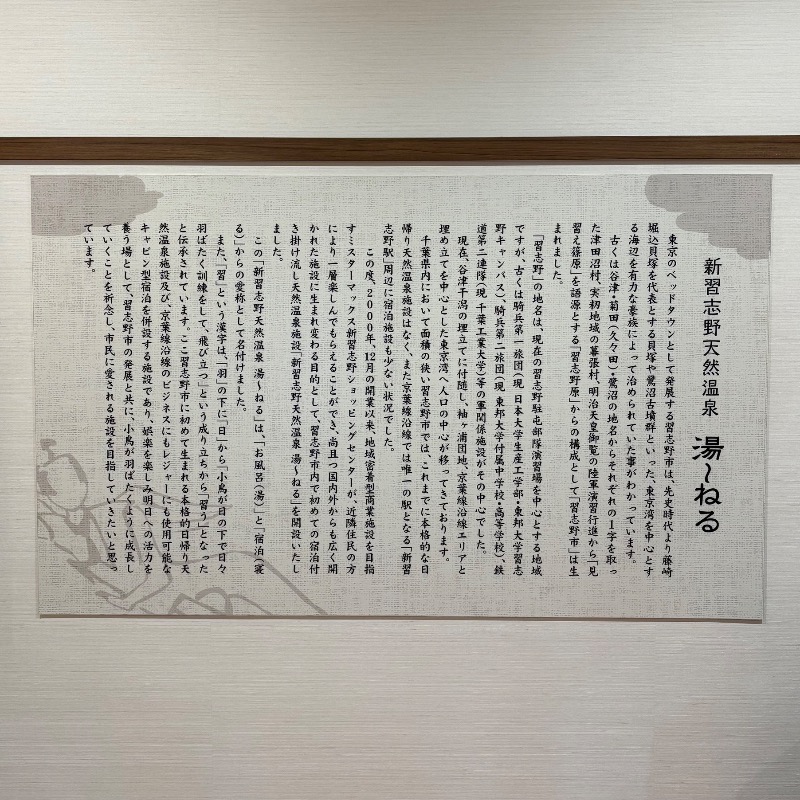 新習志野天然温泉 湯〜ねる
東京のベッドタウンとして発展する習志野市は、先史時代より藤崎
堀込貝塚を代表とする貝塚や鷺沼古墳群といった、東京湾を中心とす
る海辺を有力な豪族によって治められていた事がわかっています。
古くは谷津・菊田(久々田)・鷺沼の地名からそれぞれの1字を取っ
た津田沼村、実籾地域の幕張村、明治天皇御覧の陸軍演習行進から「見
習え篠原」を語源とする「習志野原」からの構成として「習志野市」は生
まれました。
「習志野」の地名は、現在の習志野駐屯部隊演習場を中心とする地域
ですが、古くは騎兵第一旅団(現 日本大学生産工学部・東邦大学習志
野キャンパス)、騎兵第二旅団(現 東邦大学付属中学校・高等学校)、鉄
道第二連隊(現 千葉工業大学)等の軍関係施設がその中心でした。
現在、谷津干潟の埋立てに付随し、袖ヶ浦団地、京葉線沿線エリアと
埋め立てを中心とした東京湾へ人口の中心が移ってきております。
千葉県内において面積の狭い習志野市では、これまでに本格的な日
帰り天然温泉施設はなく、また京葉線沿線では唯一の駅となる「新習
志野駅」周辺に宿泊施設も少ない状況でした。
この度、2000年、12月の開業以来、地域密着型商業施設を目指
すミスターマックス新習志野ショッピングセンターが、近隣住民の方
により一層楽しんでもらえることができ、尚且つ国内外からも広く開
かれた施設に生まれ変わる目的として、習志野市内で初めての宿泊付
き掛け流し天然温泉施設「新習志野天然温泉 湯〜ねる」を開設いたし
ました。
この「新習志野天然温泉 湯〜ねる」は、「お風呂(湯)」と「宿泊(寝
る)」からの愛称として名付けました。
また、「習」という漢字は、「羽」の下に「日」から「小鳥が日の下で日々
羽ばたく訓練をして、飛び立つ」という成り立ちから「習う」となった
と伝承されています。ここ習志野市に初めて生まれる本格的日帰り天
然温泉施設及び、京葉線沿線のビジネスにもレジャーにも使用可能な
キャビン型宿泊を併設する施設であり、娯楽を楽しみ明日への活力を
養う場として、習志野市の発展と共に、小鳥が羽ばたくように成長し
ていくことを祈念し、市民に愛される施設を目指していきたいと思っ
ています。